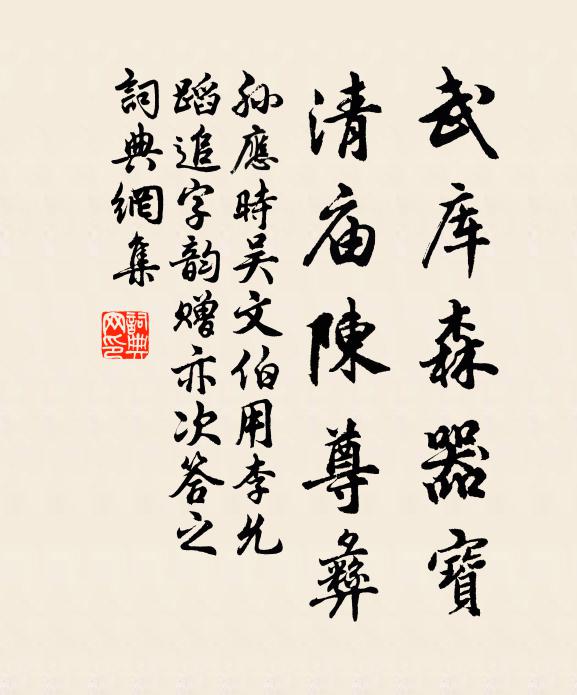 武库森器寶
清庙陳尊彝
孙應時吴文伯用李允
蹈追字韵赠亦次答之
詞典網集
詞典网印